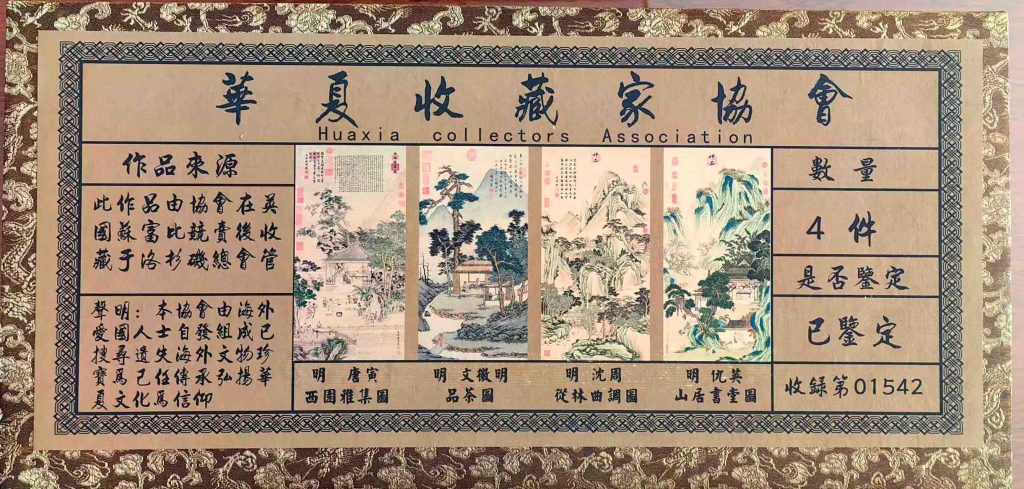 華夏收藏家協會
Huaxia collectors Association
作品來源
此作品由協會在英
國蘇富比競賣後收
藏于洛杉磯總會管
聲明：本協會由海外
愛國人士自發組成已
搜尋遺失海外文物珍
寶爲己任傳承弘揚華
夏文化爲信仰
明 唐寅
西園雅集圖
明 文徵明
品茶圖
明 沈周
從林曲調圖
明 仇英
山居書堂圖
數量
4件
是否鑒定
已鑒定
收録第01542